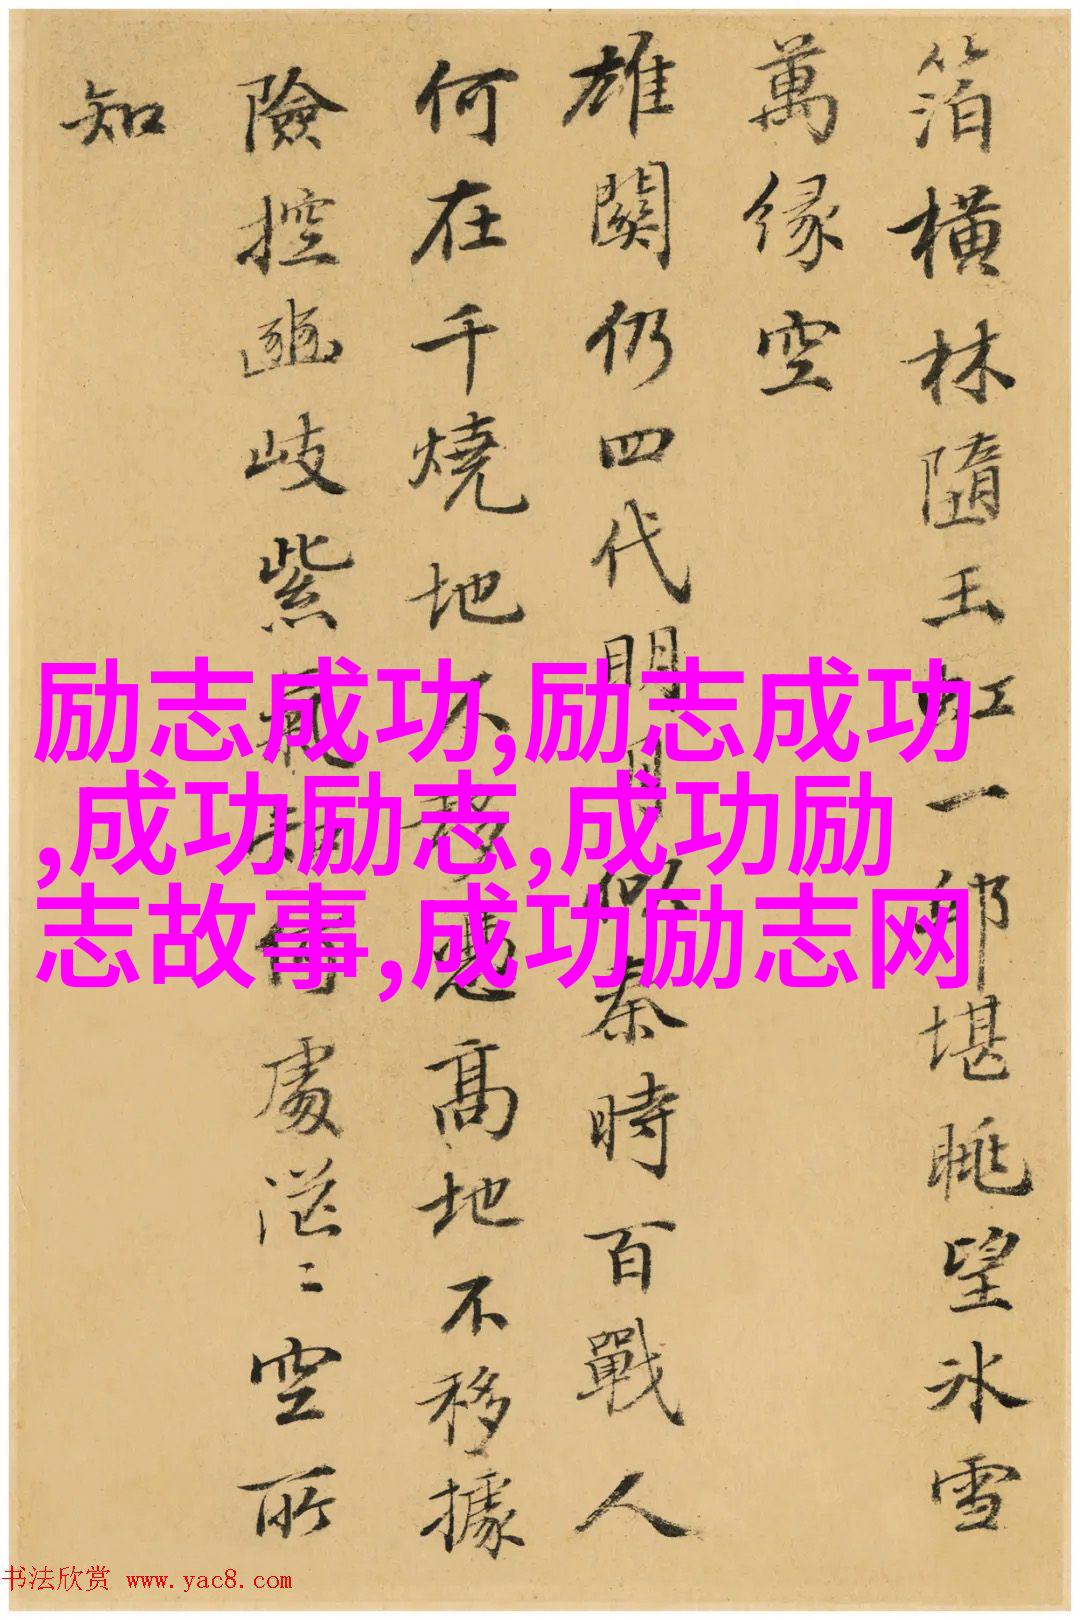 箔橫林隨玉虹一邨堪眺望冰雪
萬緣空
雄關仍四代明月似秦時百戰人
何在千燒地不憑高地不移據
險控豳岐紫處茫〻空所
知
励志成功,励志成功
,成功励志,成功励
志故事,成功励志网
书法欣赏 www.yac8.com